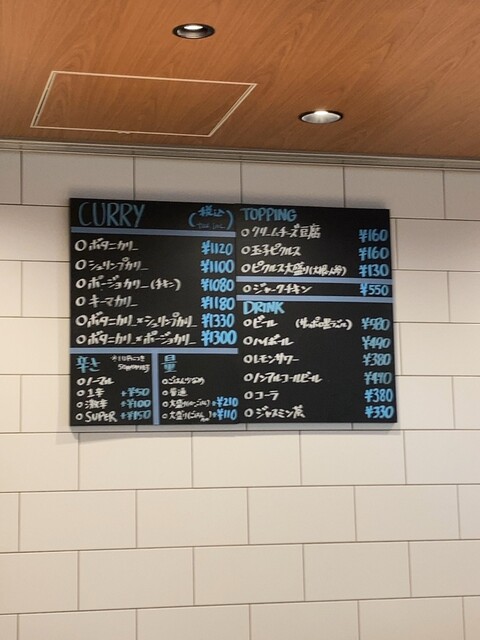 CURRY (税込)
○ボタニカリー ¥1120
○シュリンプカリー ¥1100
○ポージョカリー(チキン) ¥1080
○キーマカリー ¥1180
○ボタニカリー×シュリンプカリー ¥1330
○ボタニカリー×ポージョカリー ¥1300
辛さ
○ノーマル
○1辛 +¥50
○激辛 +¥100
○SUPER +¥150
量
○ごはん少なめ
○普通
○大盛り +¥210
○大盛り(ごはん) +¥110
TOPPING
○クリームチーズ豆腐 ¥160
○玉子ピクルス ¥160
○ピクルス大盛り ¥130
○ジャークチキン ¥550
DRINK
○ビール
○ハイボール ¥490
○レモンサワー ¥380
○ノンアルコールビール
○コーラ ¥380
○ジャスミン茶 ¥330